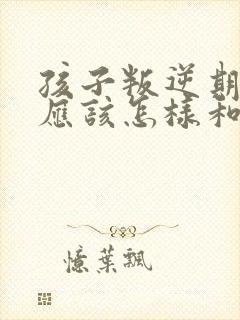 孩子叛逆期
應該怎樣和
憶葉飄